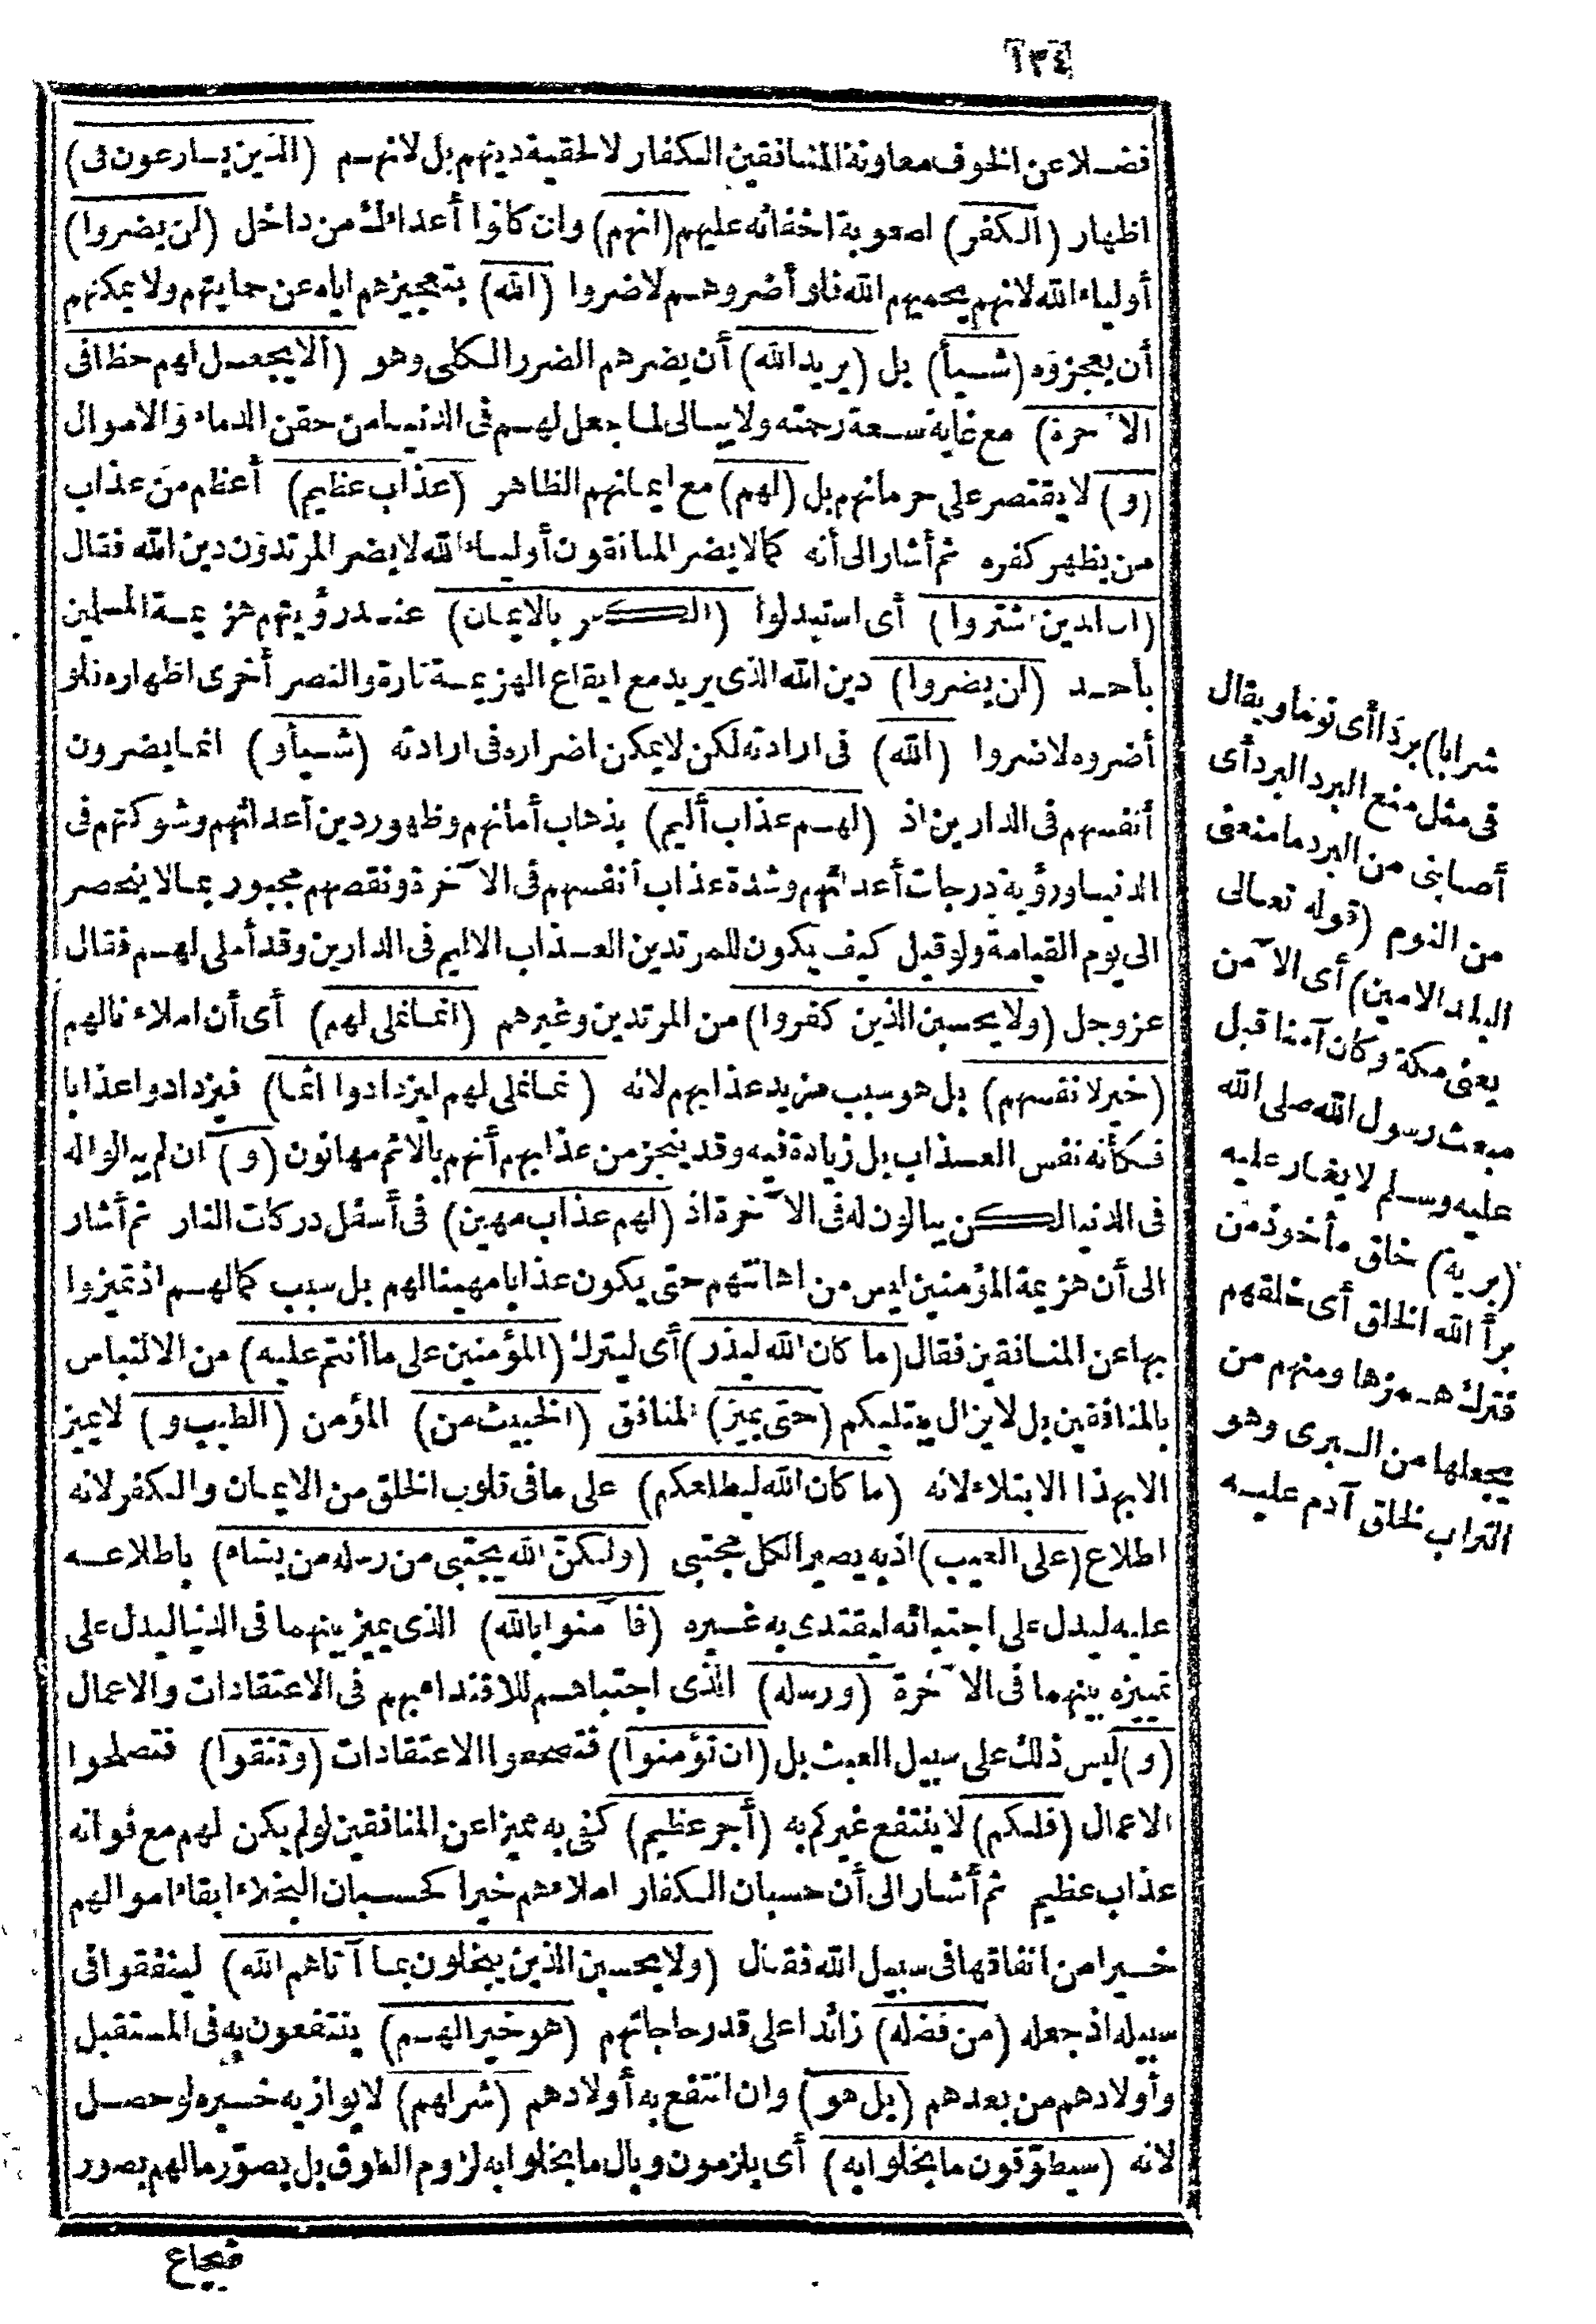 ١٣٤
فضلا عن الخوف معاونة المنافقين الكفار لا لحقية دينهم بل لانهم (الذين يسارعون فى)
اظهار (الكفر) لصعوبة اخفائه عليهم (انهم) وان كانوا أعداءك من داخل (لن يضروا)
أولياء الله لانهم يحميهم الله فلو أضروهم لاضروا (الله) بتعجيزهم اياه عن حمايتهم ولا يمكنهم
أن يعجزوه (شيأ) بل (يريد الله) أن يضرهم الضرر الكلى وهو (ألا يجعل لهم حظا فى
الآخرة) مع غاية سعة رحمته ولا يبالى لما جعل لهم فى الدنيا من حقن الدماء والاموال
(و) لا يقتصر على حرمانهم بل (لهم) مع ايمانهم الظاهر (عذاب عظيم) أعظم من عذاب
من يظهر كفره ثم أشار الى أنه كما لا يضر المنافقون أولياء الله لا يضر المرتدون دين الله فقال
(ان الذين اشتروا) أى استبدلوا (الكفر بالايمان) عند رؤيتهم هزيمة المسلمين
بأحد (لن يضروا) دين الله الذى يريد مع ايقاع الهزيمة تارة والنصر أخرى اظهاره فلو
أضروه لاضروا (الله) فى ارادته لكن لا يمكن اضراره فى ارادته (شيأ و) انما يضرون
أنفسهم فى الدارين اذ (لهم عذاب أليم) بذهاب أمانهم وظهور دين أعدائهم وشوكتهم فى
الدنيا ورؤية درجات أعدائهم وشدة عذاب أنفسهم فى الآخرة ونقصهم مجبور بما لا ينحصر
الى يوم القيامة ولو قيل كيف يكون للمرتدين العذاب الاليم فى الدارين وقد أملى لهم فقال
عز وجل (ولا يحسبن الذين كفروا) من المرتدين وغيرهم (انما نملى لهم) أى أن املاءنا لهم
(خير لانفسهم) بل هو سبب مزيد عذابهم لانه (انما نملى لهم ليزدادوا اثما) فيزدادوا عذابا
فكأنه نفس العذاب بل زيادة فيه وقد ينجز من عذابهم أنهم بالاثم مهانون (و) ان لم يبالوا له
فى الدنيا لكن يبالون له فى الآخرة اذ (لهم عذاب مهين) فى أسفل دركات النار ثم أشار
الى أن هزيمة المؤمنين ليس من اهانتهم حتى يكون عذابا مهينا لهم بل سبب كمالهم اذ تميزوا
بها عن المنافقين فقال (ما كان الله ليذر) أى ليترك (المؤمنين على ما أنتم عليه) من الالتباس
بالمنافقين بل لا يزال يبتليكم (حتى يميز) المنافق (الخبيث من) المؤمن (الطيب و) لا يميز
الا بهذا الابتلاء لانه (ما كان الله ليطلعكم) على ما فى قلوب الخلق من الايمان والكفر لانه
اطلاع (على الغيب) اذ به يصير الكل مجتبى (ولكن الله يجتبى من رسله من يشاء) باطلاعه
عليه ليدل على اجتبائه ليقتدى به غيره (فآمنوا بالله) الذى يميز بينهما فى الدنيا ليدل على
تمييزه بينهما فى الآخرة (ورسله) الذى اجتباهم للاقتداء بهم فى الاعتقادات والاعمال
(و) ليس ذلك على سبيل العبث بل (ان تؤمنوا) فتصححوا الاعتقادات (وتتقوا) فتصلحوا
الاعمال (فلكم) لا ينتفع غيركم به (أجر عظيم) كفى به مميزا عن المنافقين لو لم يكن لهم مع فواته
عذاب عظيم ثم أشار الى أن حسبان الكفار املاءهم خيرا كحسبان البخلاء ابقاء اموالهم
خيرا من انفاقها فى سبيل الله فقال (ولا يحسبن الذين يبخلون بما آتاهم الله) لينفقوا فى
سبيله اذ جعله (من فضله) زائدا على قدر حاجاتهم (هو خيرا لهم) ينتفعون به فى المستقبل
وأولادهم من بعدهم (بل هو) وان انتفع به أولادهم (شر لهم) لا يوازيه خيره لو حصل
لانه (سيطوقون ما بخلوا به) أى يلزمون وبال ما بخلوا به لزوم الطوق بل يصور مالهم بصور
شجاع
شرابا) بردا أى نوما ويقال
فى مثل منع البرد البرد أى
أصابنى من البرد ما منعنى
من النوم (قوله تعالى
البلد الامين) أى الآمن
يعنى مكة وكان آمنا قبل
مبعث رسول الله صلى الله
عليه وسلم لا يغار عليه
(برية) خلق مأخوذ من
برأ الله الخلق أى خلقهم
فترك همزها ومنهم من
يجعلها من البرى وهو
التراب لخلق آدم عليه